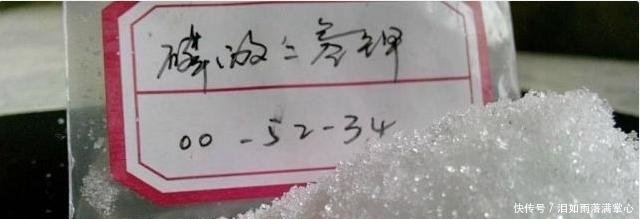 磷酸二氢钾
00-52-34
快传号 / 泪如雨落满掌心